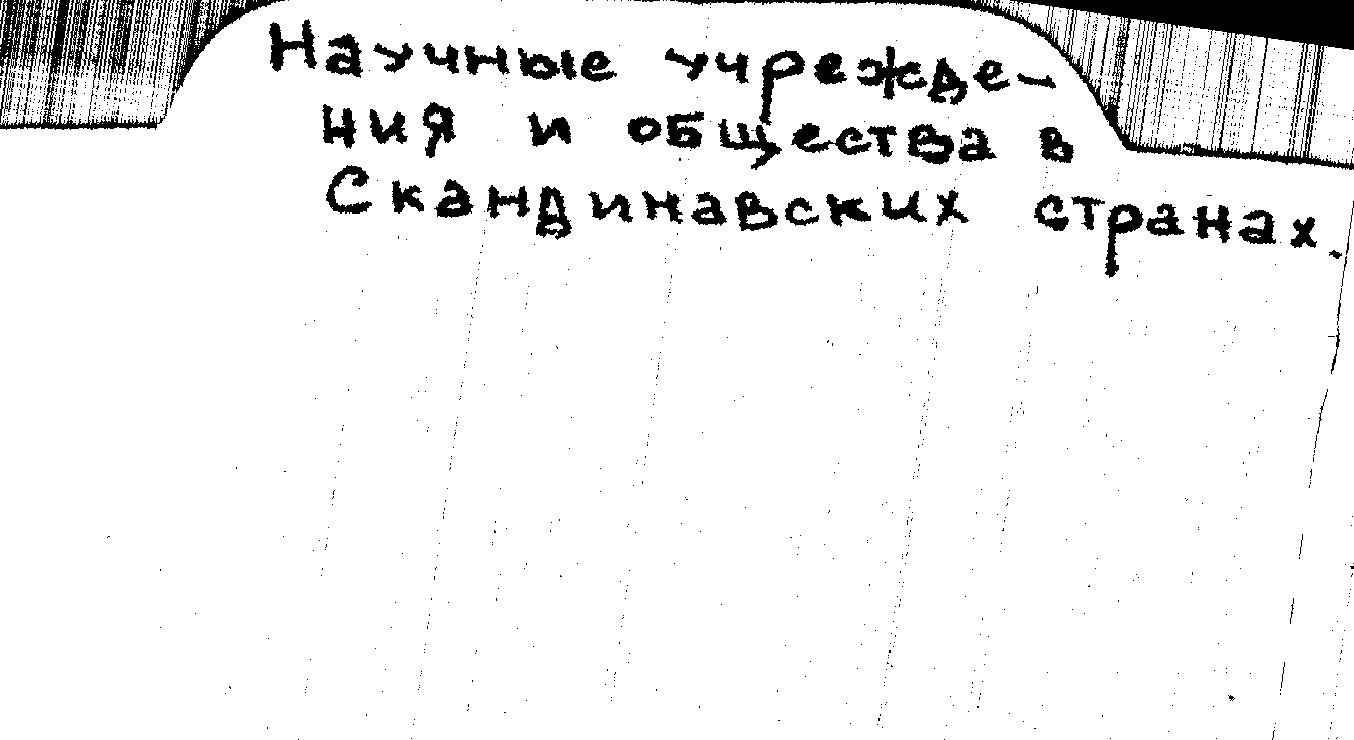 Научные учрежде-
ния и общества в
Скандинавских странах.